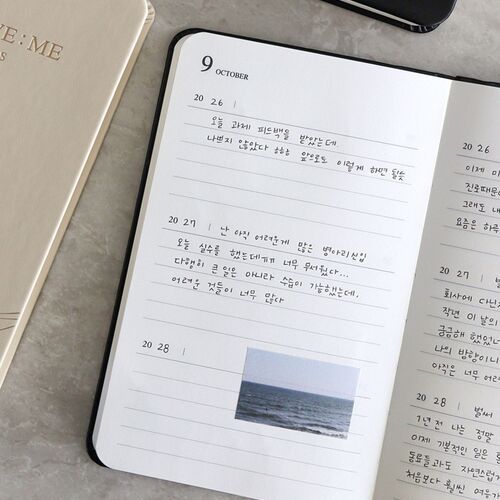 VE:ME
S
9 OCTOBER
20 26 |
오늘 과제 피드백을 받았는데
나쁘지 않았다 ㅎㅎㅎ 앞으로도 이렇게 하면 될듯
20 27 | 난 아직 어려운게 많은 병아리신입
오늘 실수를 했는데ㄲㄲ 너무 무서웠다...
다행히 큰 일은 아니라 수습이 가능했는데,
어려운 것들이 너무 많다
20 28 |
20 26
이제 이
진로때문에
그래도 내
요즘은 하루
20 27 | 벌
회사에 다닌지
작년 이 날이
궁금해 했었
나의 방향이
아직은 너무 어려
20 28 | 벌써
1년 전 나는 정말
이제 기본적인 일은
동료들과도 자연스럽게
처음보다 훨씬 여유